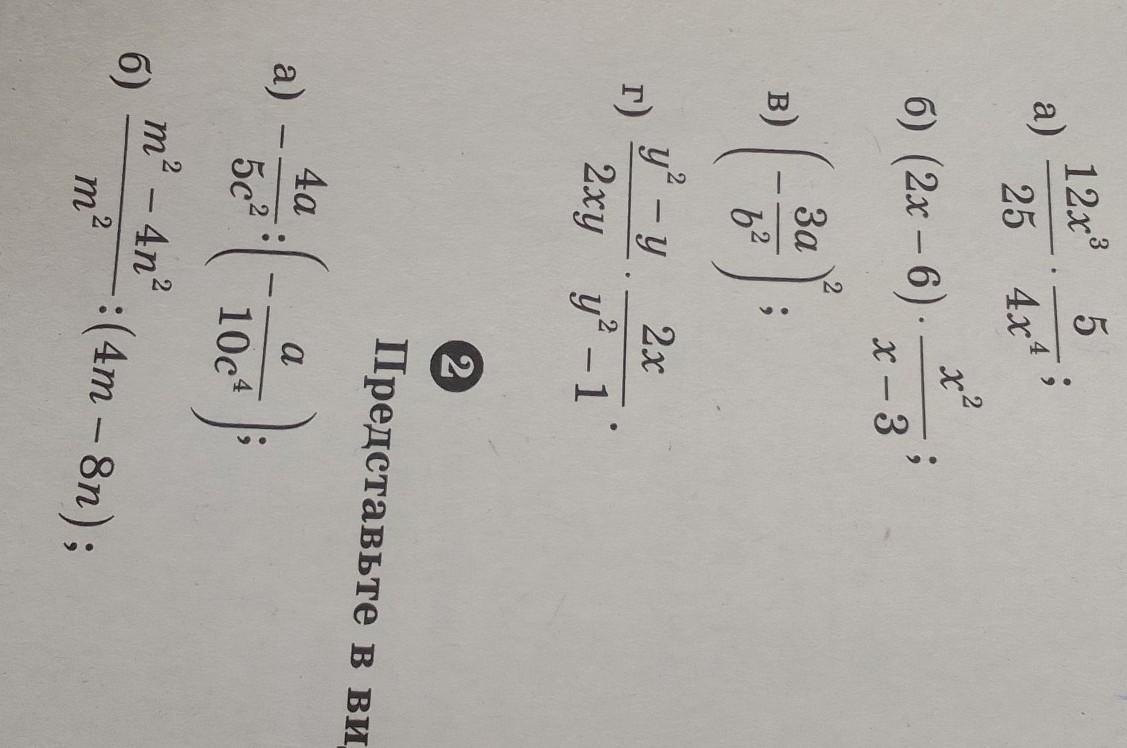 а) 12x³/25 · 5/4x⁴;
б) (2x − 6) · x²/x − 3;
в) (− 3a/b²)²;
г) y² − y/2xy · 2x/y² − 1.
2
Представьте в ви
а) − 4a/5c² : (− a/10c⁴);
б) m² − 4n²/m² : (4m − 8n);